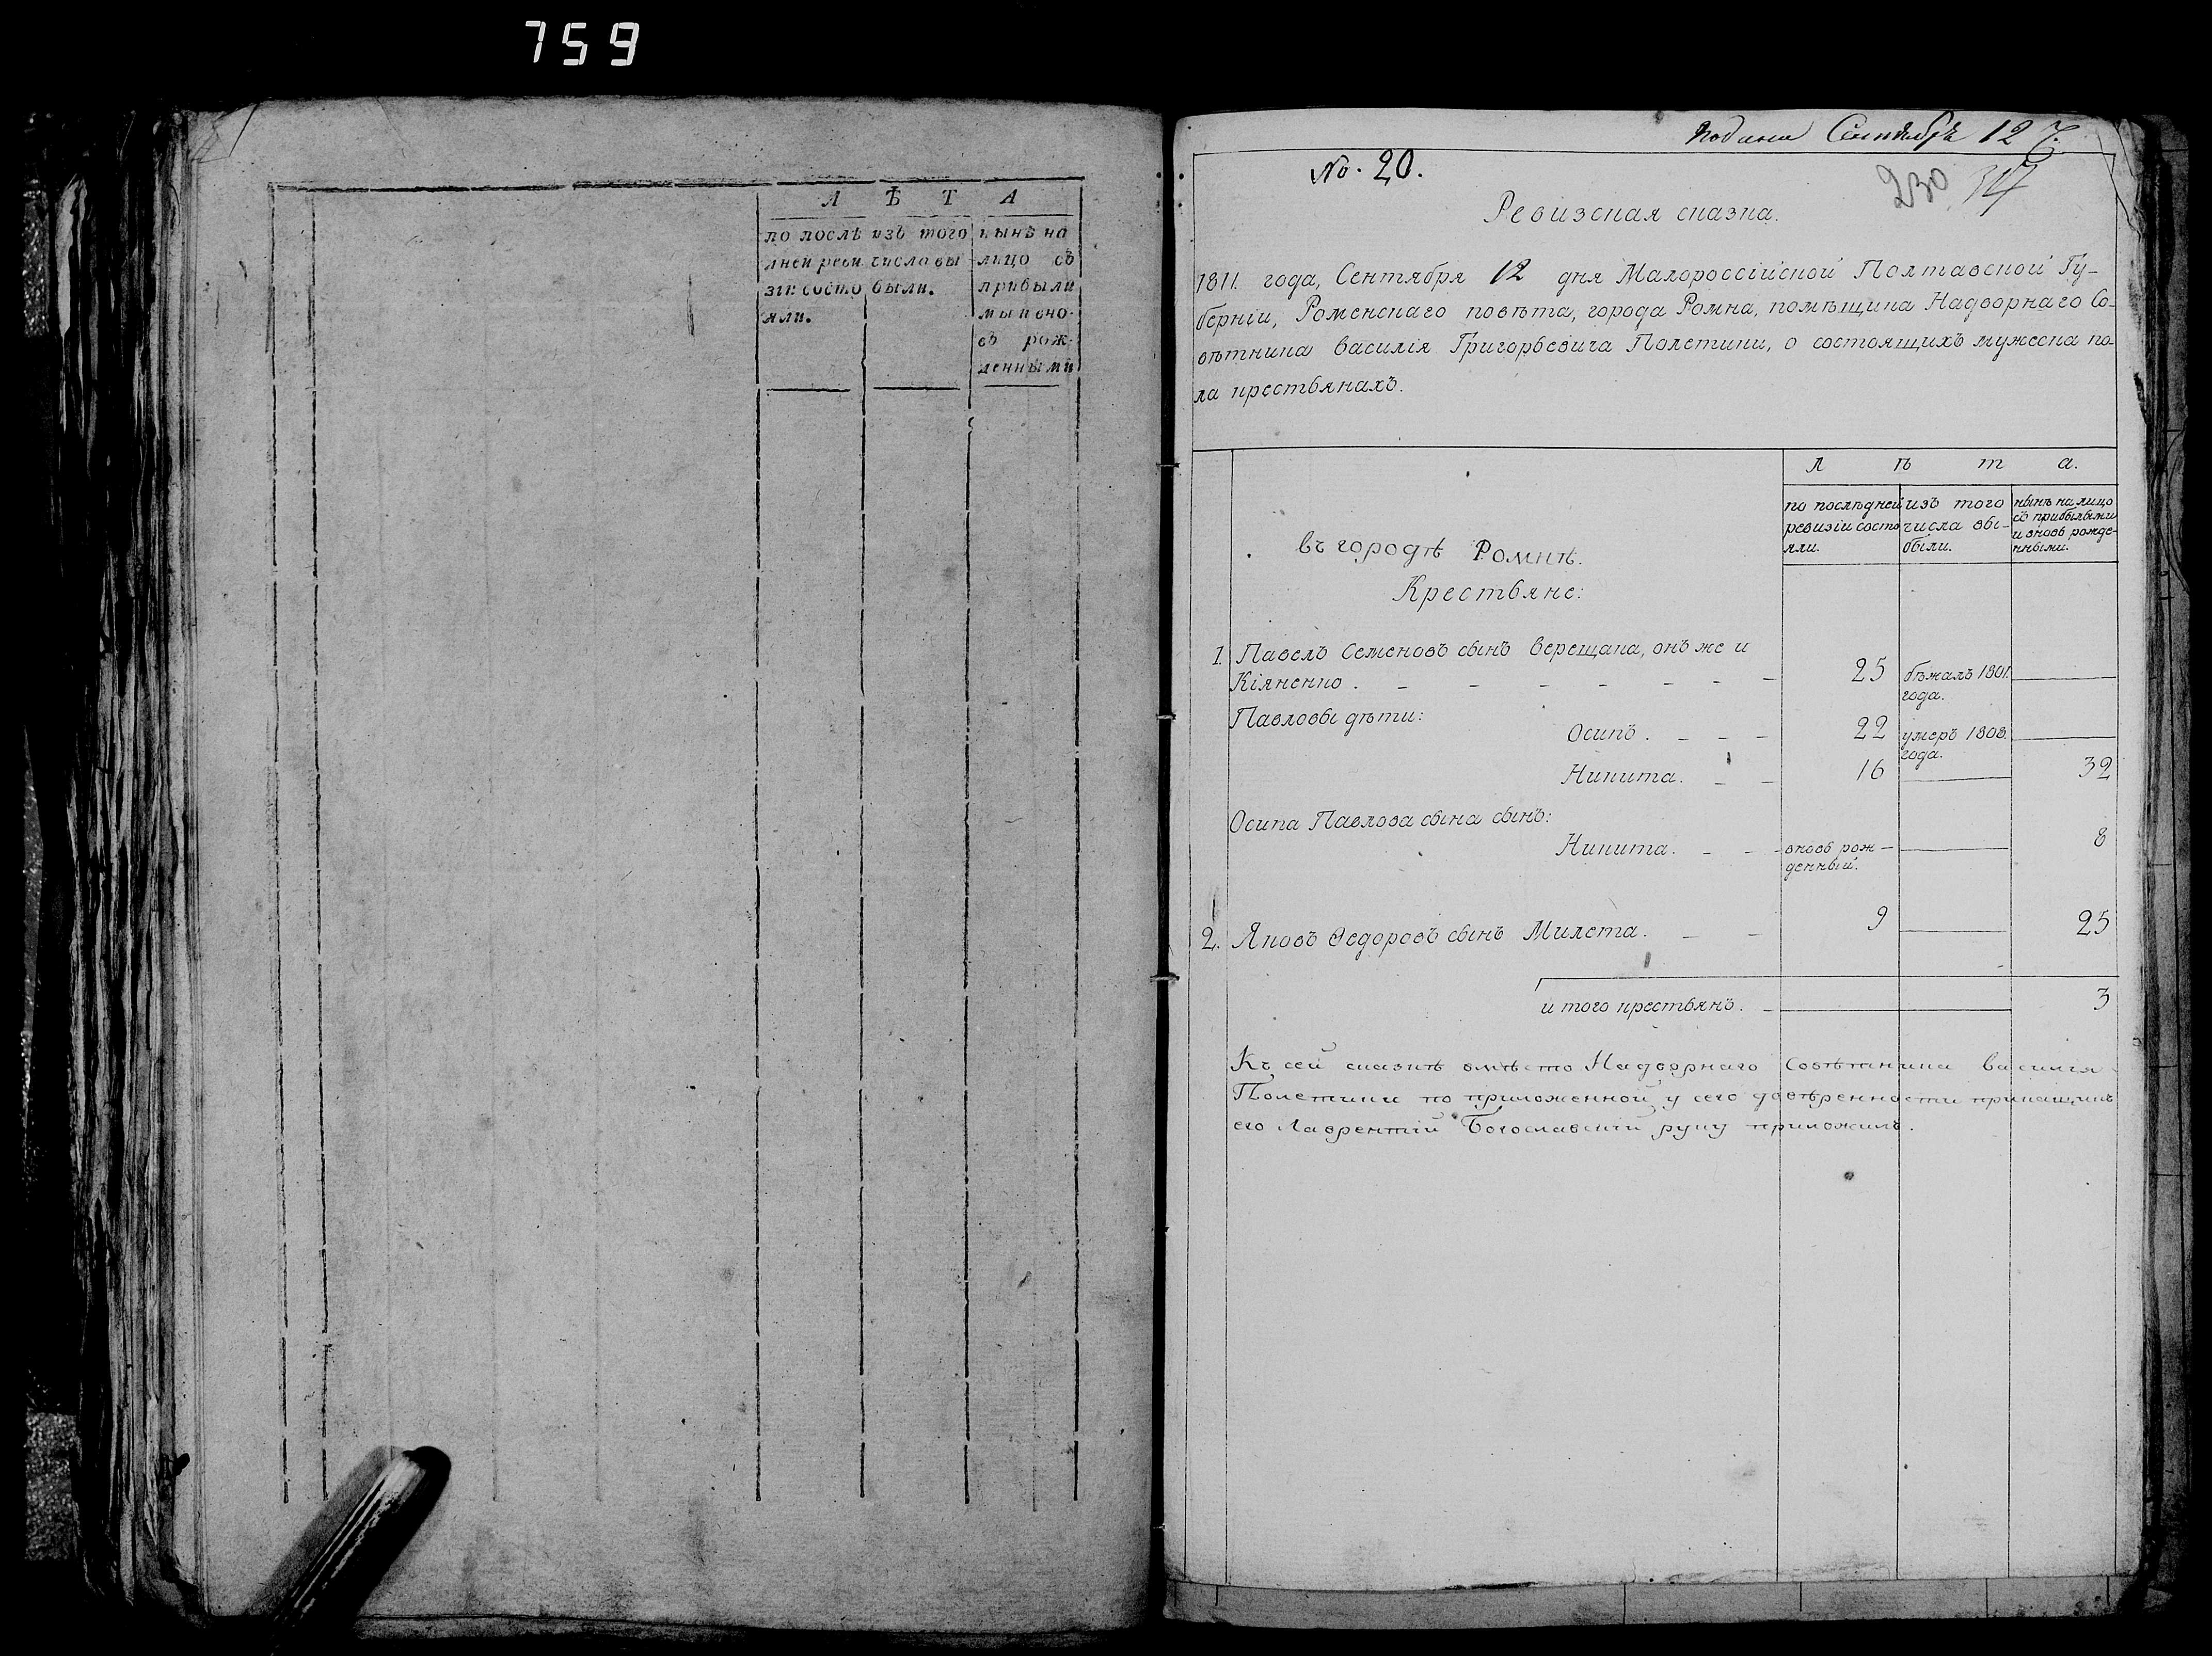 759
Л Ѣ Т А
по послѣ
дней реви
зіи состо
яли.
изъ того
числа вы
были.
нынѣ на
лицо съ
прибыли
ми и вно-
въ рож-
денными
Подана Сентября 12 Ч.
No. 20.
230
Ревизская сказка.
1811. года, Сентября 12 дня Малороссійской Полтавской Гу-
берніи, Роменскаго повѣта, города Ромна, помѣщика Надворнаго Со-
вѣтника Василія Григорьевича Полетики, о состоящихъ мужеска по-
ла крестьянахъ.
л ѣ т а.
по послѣдней
ревизіи состо
яли.
изъ того
числа вы-
были.
нынѣ на лицо
съ прибылыми
и вновь рожде-
нными.
въ городѣ Ромнѣ.
Крестьяне:
1. Павелъ Семеновъ сынъ Верещака, онъ же и
Кіяненко. - - - - - - - 25 бѣжалъ 1801.
года.
Павловы дѣти:
Осипъ. - - - 22 умеръ 1808.
года.
Никита. - - 16 32
Осипа Павлова сына сынъ:
Никита. - - - вновь рож-
денный. 8
2. Яковъ Ѳедоровъ сынъ Милета. - - 9 25
и того крестьянъ. - 3
Къ сей сказкѣ вмѣсто Надворнаго Совѣтника Василія
Полетики по приложенной у сего довѣренности прикащикъ
его Лаврентій Богославскій руку приложилъ.